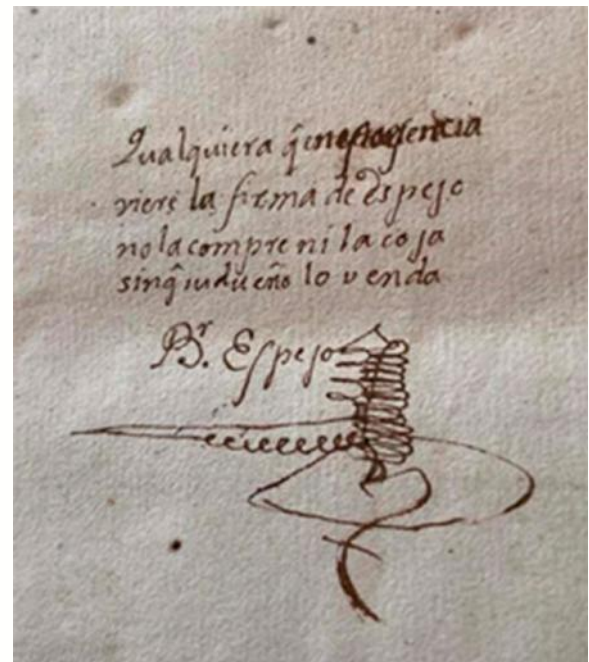 Qualquiera q̃ en
viere la firma de Espejo
no la compre ni la coja
sin q̃ su dueño lo venda
Br. Espejo